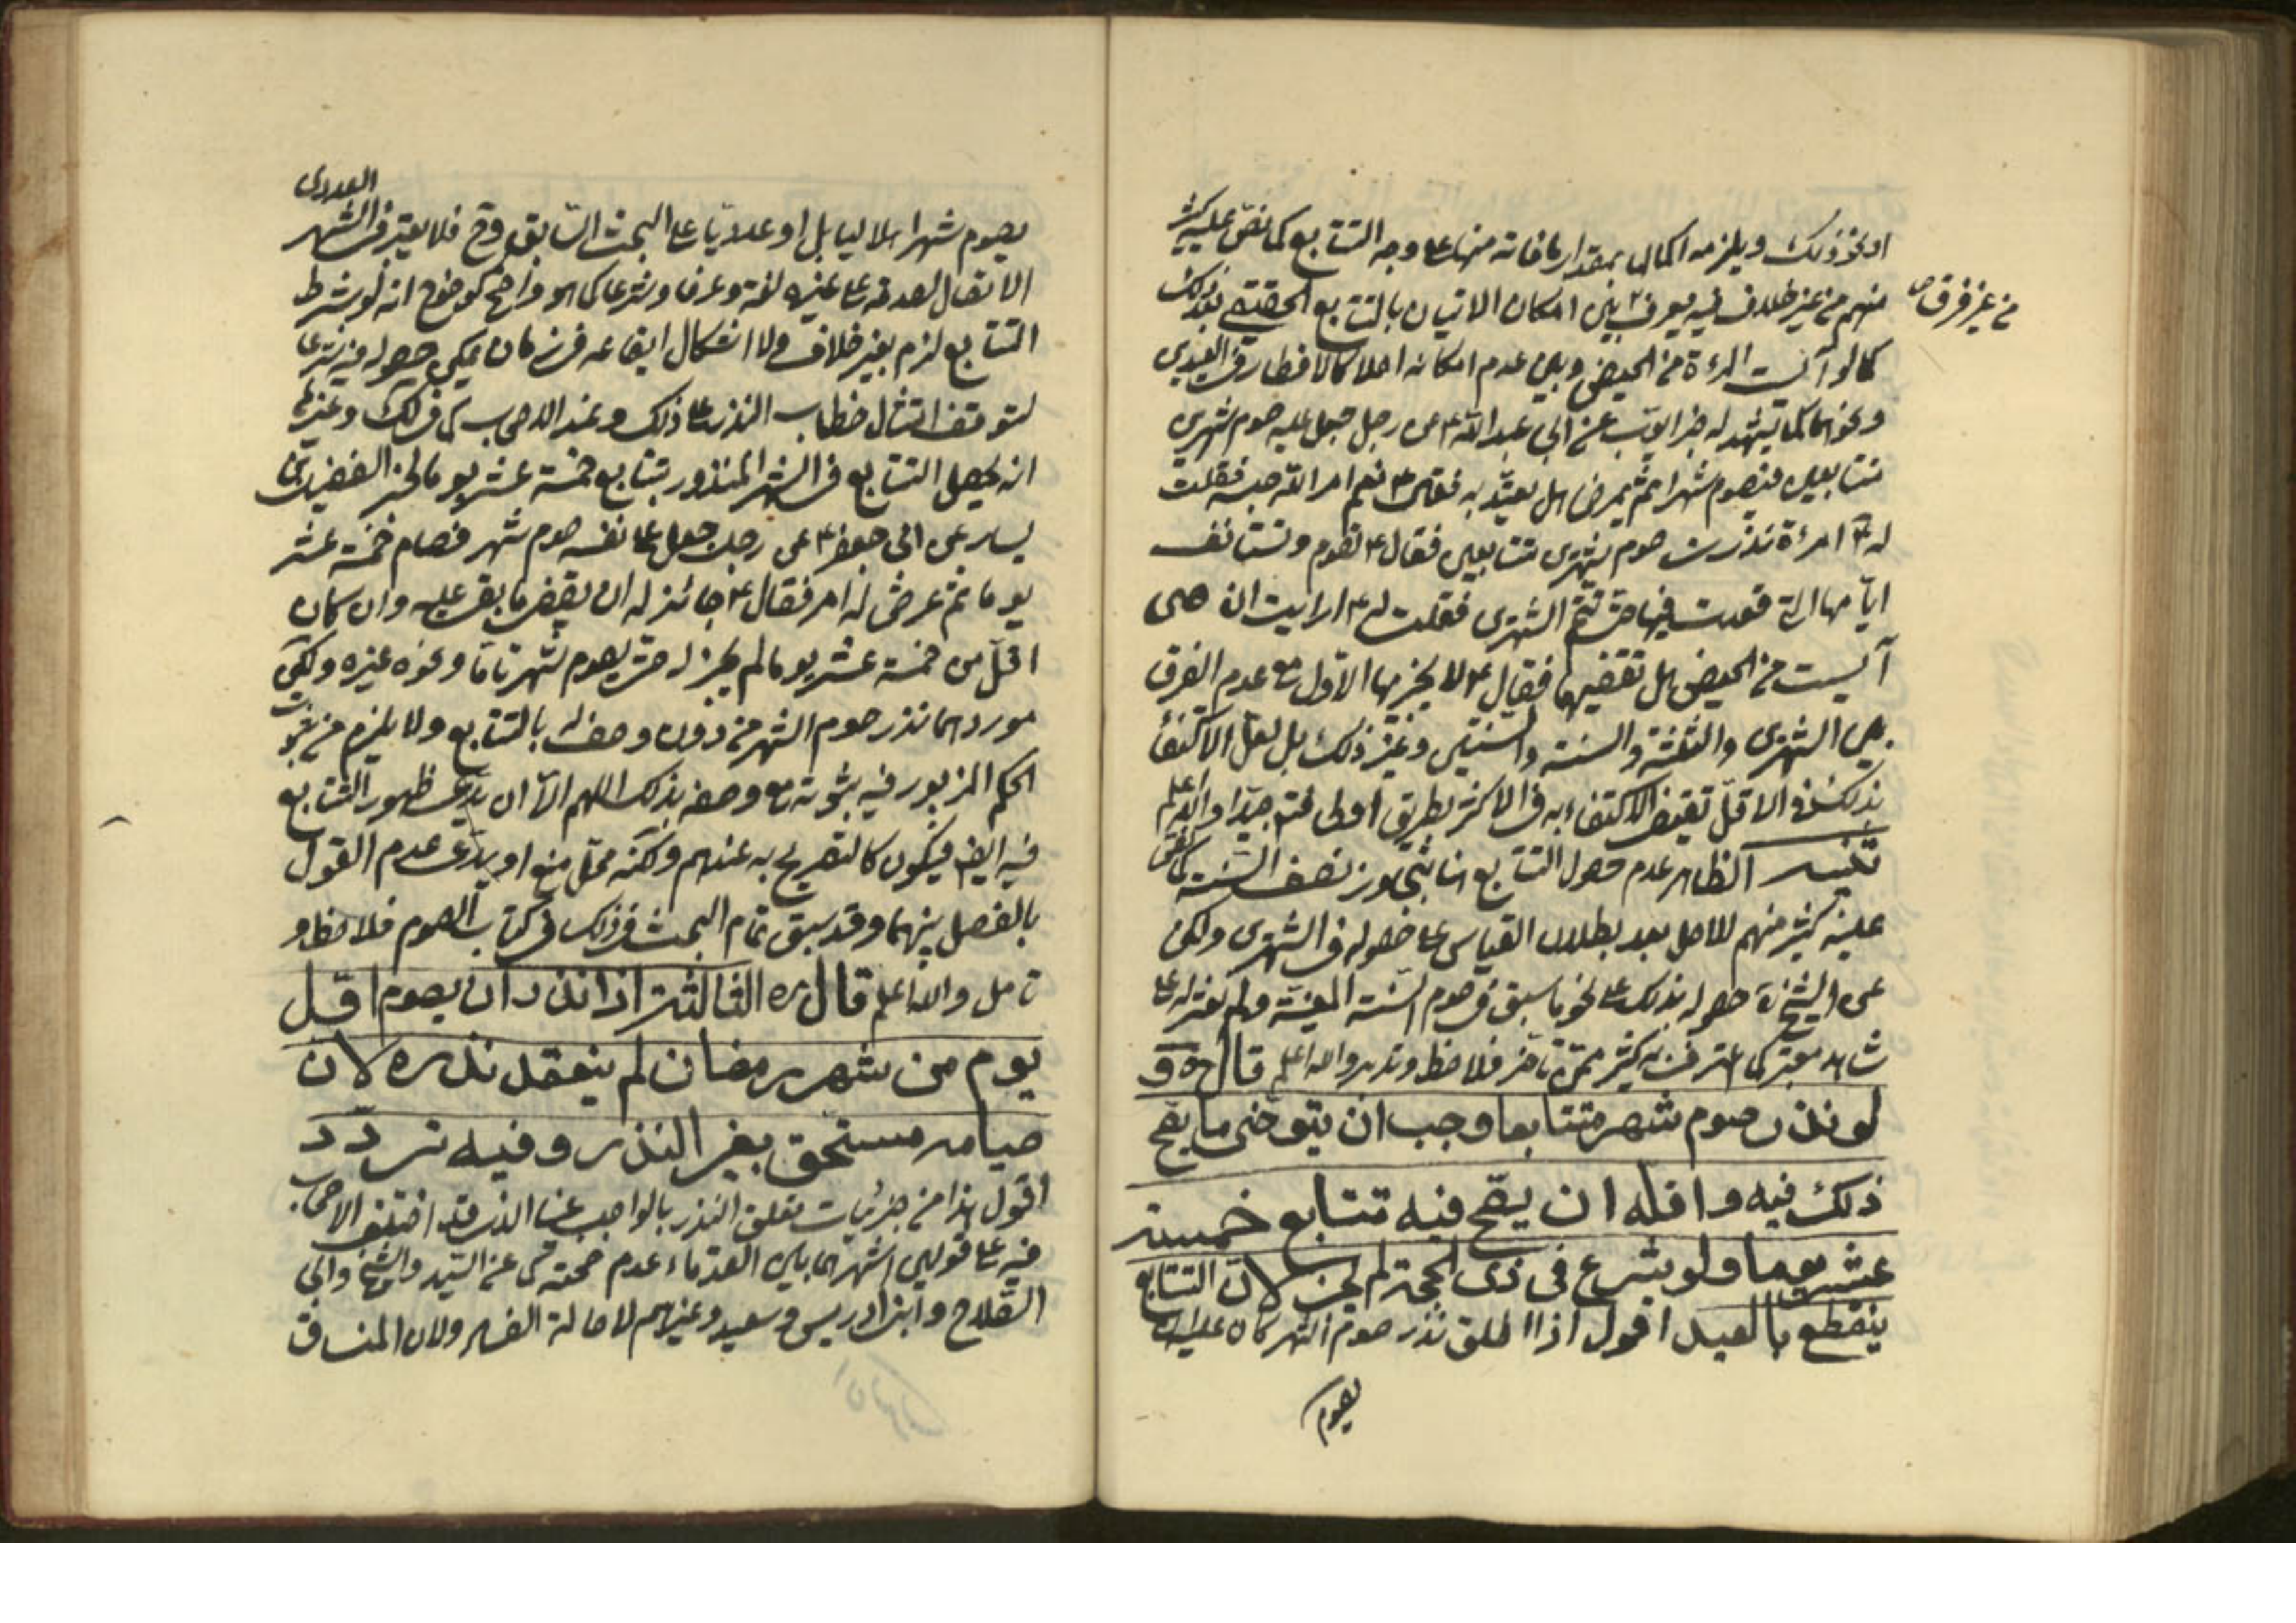 او نحو ذلك ويلزمه اكمال بمقدار ما فاته منها على وجه التتابع كما نص عليه كثير
منهم من غير خلاف فيه يعرف بين امكان الاتيان بالتتابع الحقيقي بعد ذلك
من غير فرق
كما لو آيست المرءة من الحيض وبين عدم امكانه اصلا كالافطار في العيدين
ونحوهما كما يشهد له خبر ابى عبد الله ع عن رجل جعل عليه صوم شهرين
متتابعين فيصوم شهرا ثم يمرض هل يعتد به فقال ع نعم امر الله حبسه فقلت
له ع امرءة نذرت صوم شهرين متتابعين فقال ع تصوم وتستانف
ايامها التى قعدت فيها حتى تتم الشهرين فقلت له ع ارايت ان هى
آيست من الحيض هل تقضيها فقال ع لا يجزيها الاول مع عدم الفرق
بين الشهرين والثلثة والسنة والسنتين وغير ذلك بل لعل الاكتفاء
بذلك في الاقل تقيض الاكتفاء به فى الاكثر بطريق اولى فتم جيدا والله اعلم
تنبيه الظاهر عدم حصول التتابع هنا بتجاوز نصف السنة كما نص
عليه كثير منهم للاصل بعد بطلان القياس على حصوله فى الشهرين ولكن
عن الشيخ ره حصوله بذلك على نحو ما سبق فى صوم السنة المعينة ولم نعثر له على
شاهد معتبر كما اعترف به كثير ممن تاخر فلاحظ وتدبر والله اعلم قال ره و
لو نذر صوم شهر متتابعا وجب ان يتوخى ما يصح
ذلك فيه واقله ان يصح فيه تتابع خمسة
عشر يوما ولو شرع فى ذى الحجة لم يجز لان التتابع
ينقطع بالعيد اقول اذا اطلق نذر صوم الشهر كان عليه ان
يصوم
يصوم شهرا هلاليا بل او عدديا على البحث السابق وح فلا يعتبر فى الشهر
العددى
الاتصال لصدقه على غيره لغة وعرفا وشرعا كما هو واضح كوضوح انه لو شرط
التتابع لزم بغير خلاف ولا اشكال ايقاعه فى زمان يمكن حصوله فيه شرعا
لتوقف امتثال خطاب النذر على ذلك وعند الاصحاب كما فى لك وغيرها
انه يحصل التتابع فى الشهر المنذور بتتابع خمسة عشر يوما لخبر الفضيل بن
يسار عن ابى جعفر ع عن رجل جعل على نفسه صوم شهر فصام خمسة عشر
يوما ثم عرض له امر فقال ع جائز له ان يقضى ما بقى عليه وان كان
اقل من خمسة عشر يوما لم يجز له حتى يصوم شهرا تاما ونحوه غيره ولكن
موردهما نذر صوم الشهر من دون وصفه بالتتابع ولا يلزم من ثبوت
الحكم المزبور فيه ثبوته مع وصفه بذلك اللهم الا ان يدعى ظهور التتابع
فيه ايض فيكون كالتصريح به عندهم ولكنه محل منع او يدعى عدم القول
بالفصل بينهما وقد سبق تمام البحث فى ذلك فى كتاب الصوم فلاحظ و
تامل والله اعلم قال ره الثالثة اذا نذر ان يصوم اقل
يوم من شهر رمضان لم ينعقد نذره لان
صيامه مستحق بغير النذر وفيه تردد
اقول هذا من جزئيات تعلق النذر بالواجب عينا الذى قد اختلف الاصحاب
فيه على قولين اشهرهما بين القدماء عدم صحته كما عن السيد والشيخ وابى
الصلاح وابن ادريس وسعيد وغيرهم لاصالة الفساد ولان المنساق